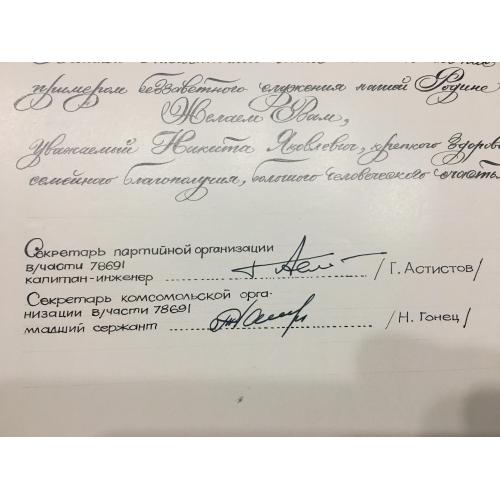 примером беззаветного служения нашей Родине
Желаем Вам,
уважаемый Никита Яковлевич, крепкого здоров
семейного благополучия, большого человеческого счасть
Секретарь партийной организации
в/части 78691
капитан-инженер /Г. Астистов/
Секретарь комсомольской орга-
низации в/части 78691
младший сержант /Н. Гонец/